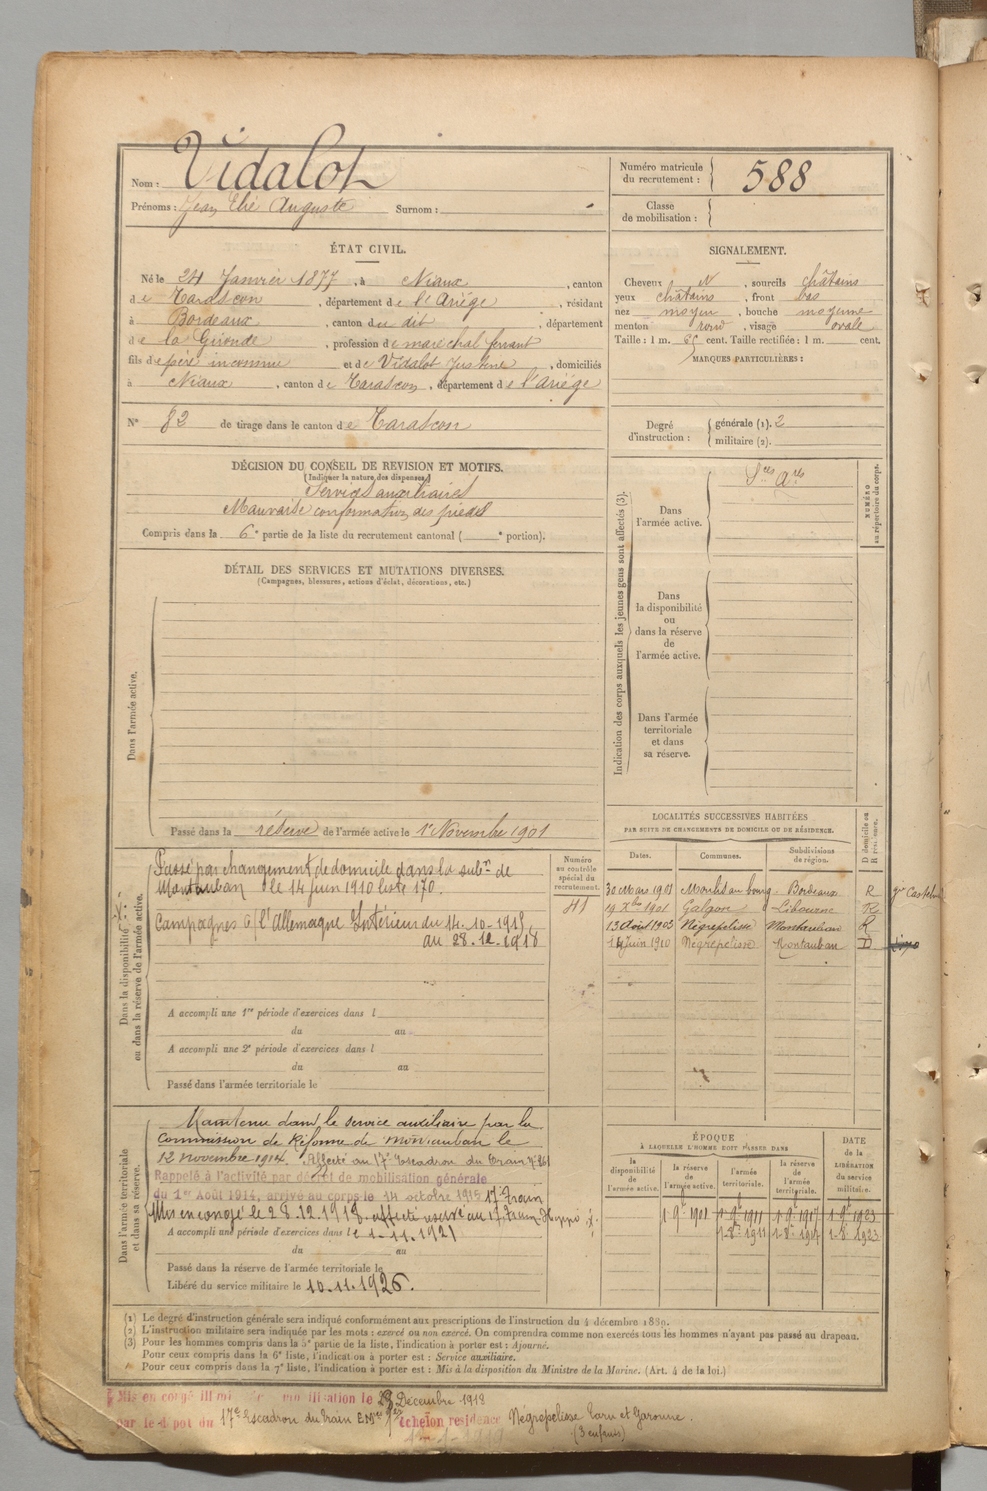 Nom : Vidalot
Prénoms : Jean Elie Auguste Surnom :
Numéro matricule du recrutement : 588
Classe de mobilisation :
ÉTAT CIVIL.
Né le 24 Janvier 1877, à Niaux, canton
de Tarascon, département de l'Ariège, résidant
à Bordeaux, canton du dit, département
de la Gironde, profession de maréchal ferrant
fils de père inconnu et de Vidalot Justine, domiciliés
à Niaux, canton de Tarascon, département de l'Ariège
N° 82 de tirage dans le canton de Tarascon
SIGNALEMENT.
Cheveux N, sourcils châtains
yeux châtains, front bas
nez moyen, bouche moyenne
menton rond, visage ovale
Taille : 1 m. 65 cent. Taille rectifiée : 1 m. cent.
MARQUES PARTICULIÈRES :
Degré d'instruction : générale (1). 2
militaire (2).
DÉCISION DU CONSEIL DE REVISION ET MOTIFS.
(Indiquer la nature des dispenses.)
Services auxiliaires
Mauvaise conformation des pieds
Compris dans la 6e partie de la liste du recrutement cantonal ( e portion).
DÉTAIL DES SERVICES ET MUTATIONS DIVERSES.
(Campagnes, blessures, actions d'éclat, décorations, etc.)
Dans l'armée active.
Passé dans la réserve de l'armée active le 1er Novembre 1901
Indication des corps auxquels les jeunes gens sont affectés (3).
Dans l'armée active.
Sces Ares
Dans la disponibilité ou dans la réserve de l'armée active.
Dans l'armée territoriale et dans sa réserve.
NUMÉRO au répertoire du corps.
Dans la disponibilité ou dans la réserve de l'armée active.
Passé par changement de domicile dans la subon de
Montauban le 14 juin 1910 liste 170.
Campagnes c/ l'Allemagne Intérieur du 14-10-1915
au 28.12.1918
A accompli une 1re période d'exercices dans l
du au
A accompli une 2e période d'exercices dans l
du au
Passé dans l'armée territoriale le
Numéro au contrôle spécial du recrutement.
LOCALITÉS SUCCESSIVES HABITÉES
PAR SUITE DE CHANGEMENTS DE DOMICILE OU DE RÉSIDENCE.
Dates. Communes. Subdivisions de région. D domicile ou R résidence.
30 Mars 1901 Bordeaux R
19 Xbre 1901 Galgon Libourne R
13 Août 1903 Negrepelisse Montauban R
14 Juin 1910 Négrepelisse Montauban D
Dans l'armée territoriale et dans sa réserve.
Maintenu dans le service auxiliaire par la
Commission de Réforme de Montauban le
12 novembre 1914. Affecté au 17e Escadron du Train
Rappelé à l'activité par décret de mobilisation générale
du 1er Août 1914, arrivé au corps le 14 octobre 1915 17e Train
Mis en congé le 28.12.1918. affecté réserve au 17e
A accompli une période d'exercices dans le 1-11-1921
du au
Passé dans la réserve de l'armée territoriale le
Libéré du service militaire le 10.11.1926.
ÉPOQUE
À LAQUELLE L'HOMME DOIT PASSER DANS
la disponibilité de l'armée active. la réserve de l'armée active. l'armée territoriale. la réserve de l'armée territoriale.
DATE de la LIBÉRATION du service militaire.
1-9bre 1901 1-9bre 1911 1-9bre 1917 1-9bre 1923
1-8bre 1911 1-8bre 1917 1-8bre 1923
(1) Le degré d'instruction générale sera indiqué conformément aux prescriptions de l'instruction du 4 décembre 1889.
(2) L'instruction militaire sera indiquée par les mots : exercé ou non exercé. On comprendra comme non exercés tous les hommes n'ayant pas passé au drapeau.
(3) Pour les hommes compris dans la 5e partie de la liste, l'indication à porter est : Ajourné.
Pour ceux compris dans la 6e liste, l'indication à porter est : Service auxiliaire.
Pour ceux compris dans la 7e liste, l'indication à porter est : Mis à la disposition du Ministre de la Marine. (Art. 4 de la loi.)
Mis en congé le 28 Décembre 1918
par le dépot du 17e Escadron du Train échelon residence Négrepelisse Tarn et Garonne.
(3 enfants)